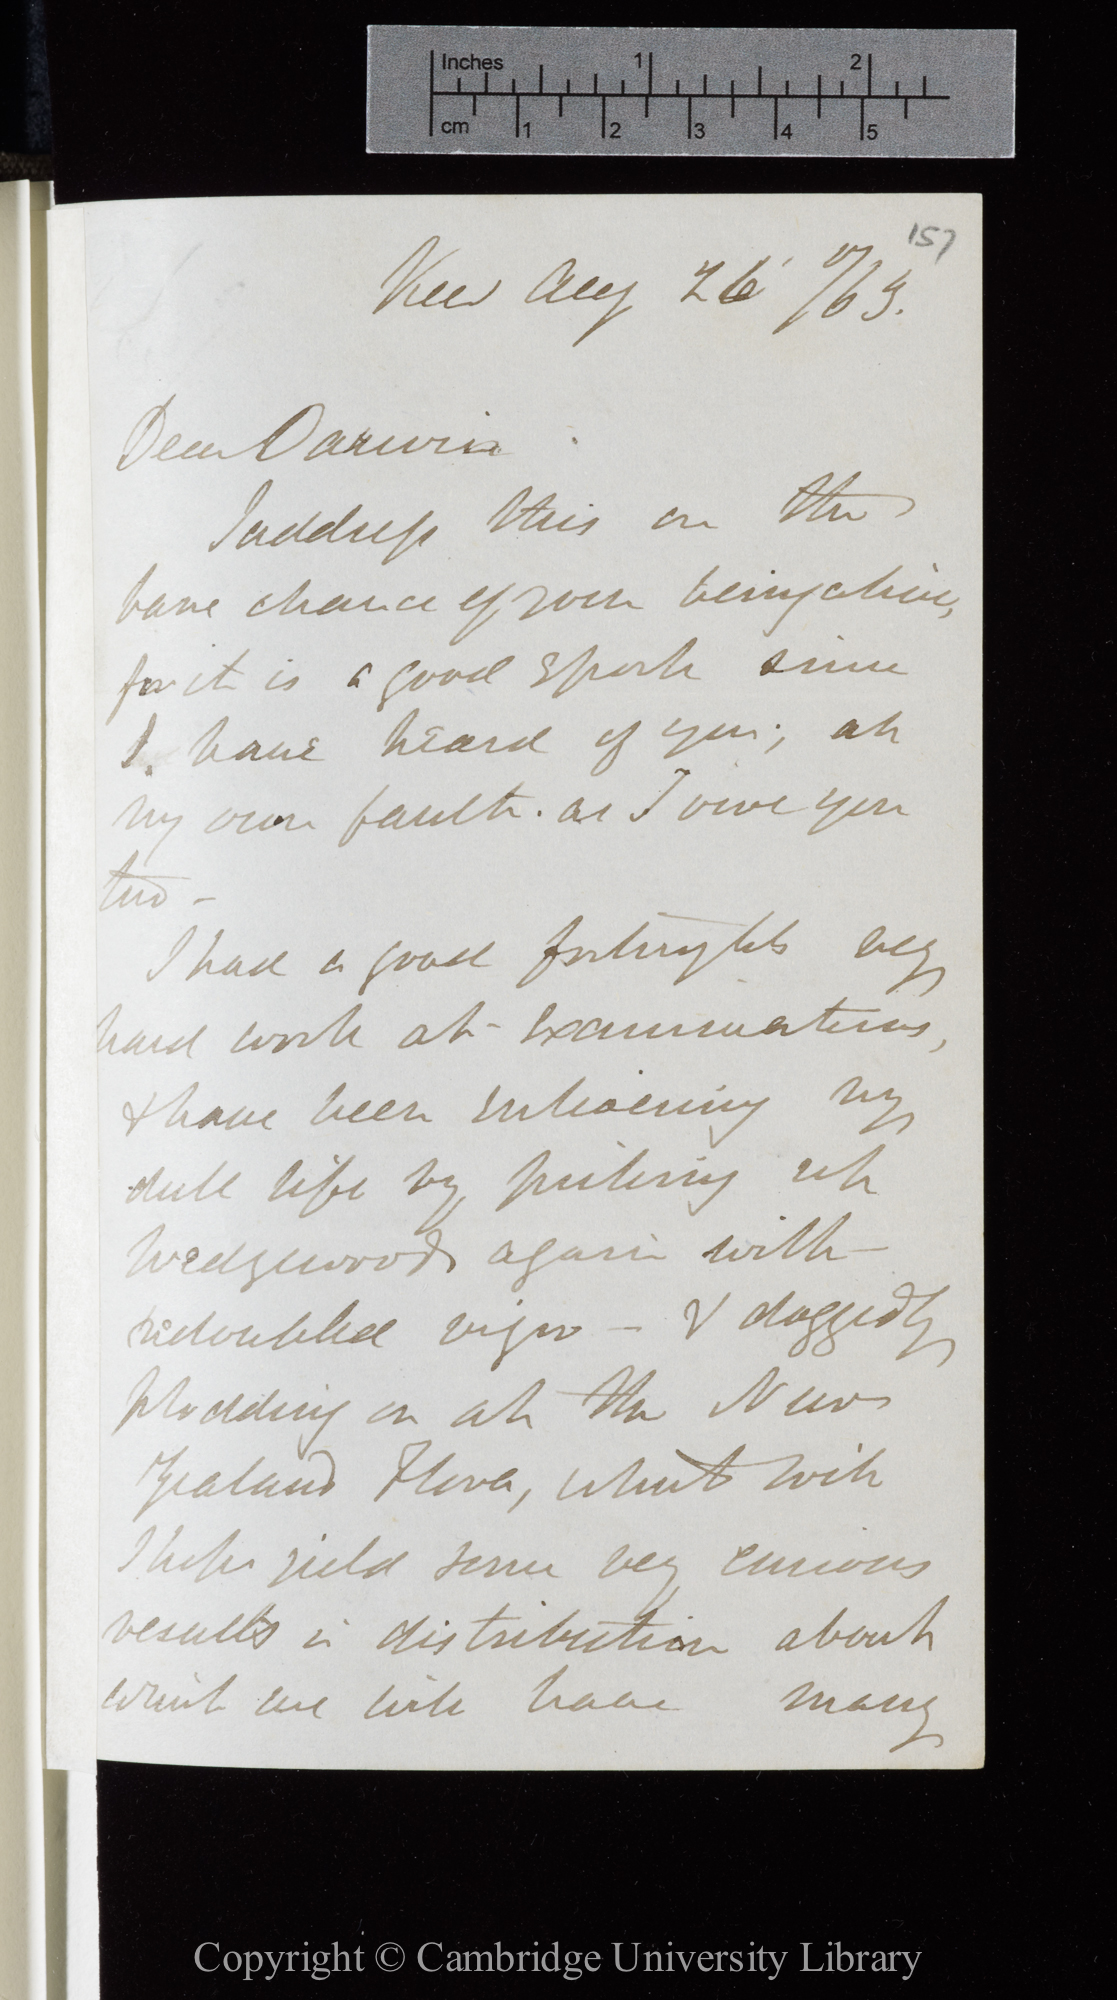 Inches 1 2
cm 1 2 3 4 5
157
Kew Aug 26th/63.
Dear Darwin
I address this on the
bare chance of your being alive,
for it is a good spell since
I have heard of you; all
my own fault. as I owe you
two —
I had a good fortnights very
hard work at Examinations,
& have been enlivening my
dull life by picking up
Wedgwoods again with
redoubled vigor — & doggedly
plodding on at the New
Zealand Flora, which will
I hope yield some very curious
results in distribution about
which we will have many
Copyright © Cambridge University Library